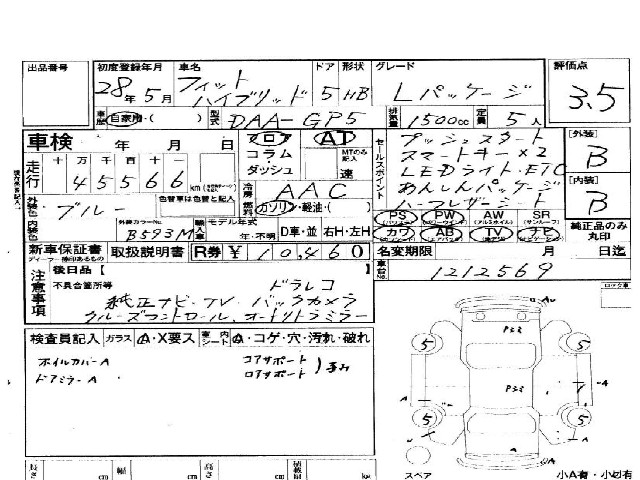 出品番号 初度登録年月 車名 ドア 形状 グレード 評価点
28年5月 フィット ハイブリッド 5 HB Lパッケージ 3.5
車歴 自家用・( ) 型式 DAA-GP5 排気量 1500cc 定員 5人
車検 年 月 日 フロア AT セールスポイント プッシュスタート [外装]
コラム MTのみ記入 スマートキー×2 B
走行 十 万 千 百 十 一 ダッシュ 速 LEDライト・ETC
45566 km 冷房 AAC あんしんパッケージ [内装]
色替車は色替と記入 燃料 ガソリン・軽油・( ) ハーフレザーシート B
外装色 ブルー PS PW AW SR
内装色 外装カラーNo. B593M 輸入車 モデル年式 年・不明 D車・並 右H・左H カワ AB TV ナビ 純正品のみ丸印
新車保証書 取扱説明書 R券 ¥10,460 名変期限 月 日迄
注意事項 後日品【 】 車台No. 1212569
不具合箇所等 ドラレコ
純正ナビ・TV・バックカメラ
クルーズコントロール、オートリトラミラー
検査員記入 ガラス A・X要ス 車内シート A・コゲ・穴・汚れ・破れ
ホイルカバーA コアサポート
ドアミラーA ロアサポート 歪み
5 5 5 5
P33
P33
スペア 小A有・小凹有
長さ cm 幅 cm 高さ cm 積載量 kg